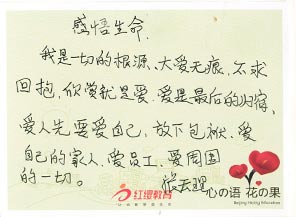 感悟生命.
我是一切的根源、大爱无痕、不求
回抱、欣赏就是爱.爱是最后的归宿.
爱人先要爱自己,放下包袱、爱
自己的家人,爱员工、爱周围
的一切。
红缨教育
心の语 花の果
Beijing HoIng Education